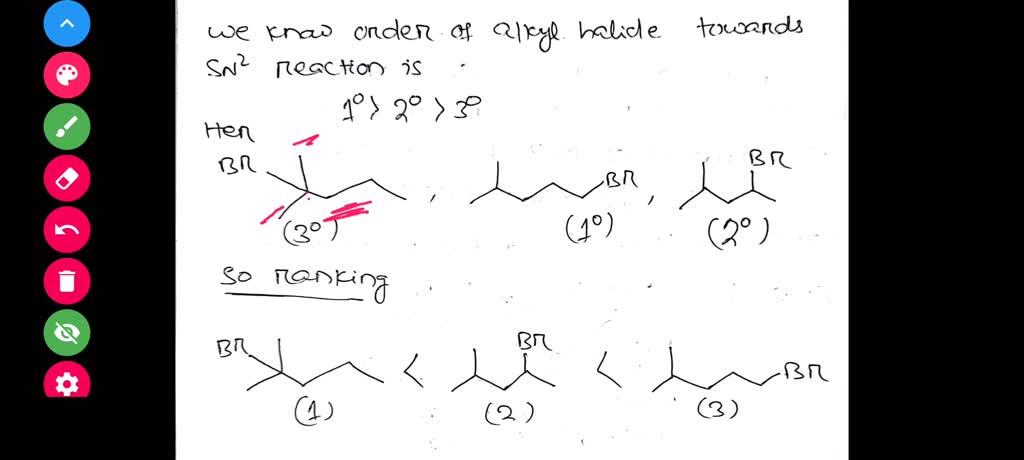 we know order of alkyl halide towards
SN2 reaction is
1° > 2° > 3°
Her
BR
BR
BR
, ,
(3°) (1°) (2°)
so ranking
BR < BR < BR
(1) (2) (3)